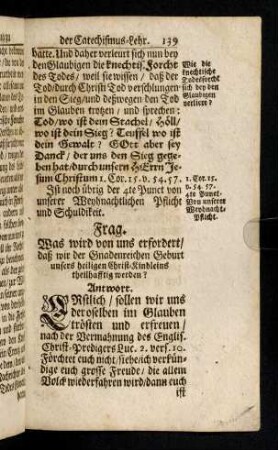 der Catechismus-Lehr. 139
hatte. Und daher verleurt sich nun bey
den Glaubigen die knechtis. Forcht
des Todes/ weil sie wissen / daß der
Tod/durch Christi Tod verschlungen
in den Sieg/und deßwegen den Tod
im Glauben trotzen / und sprechen:
Tod/ wo ist dein Stachel/ Höll/
wo ist dein Sieg? Teuffel wo ist
dein Gewalt? GOtt aber sey
Danck/ der uns den Sieg gege-
ben hat/durch unsern HErrn Je-
sum Christum 1. Cor. 15. v. 54. 57.
Ist noch übrig der 4te Punct von
unserer Weyhnachtlichen Pflicht
und Schuldikeit.
Wie die
knechtische
Todesforcht
sich bey den
Glaubigen
verliere?
1. Cor. 15.
v. 54. 57.
4te Punct.
Von unserer
Weyhnacht-
Pflicht.
Frag.
Was wird von uns erfordert/
daß wir der Gnadenreichen Geburt
unsers heiligen Christ-Kindleins
theilhafftig werden?
Antwort.
ERstlich/ sollen wir uns
deroselben im Glauben
trösten und erfreuen/
nach der Vermahnung des Englis.
Christ-Predigers Luc. 2. vers. 10.
Förchtet euch nicht/siehe/ich verkün-
dige euch grosse Freude/ die allem
Volck wiederfahren wird/dann euch
ist